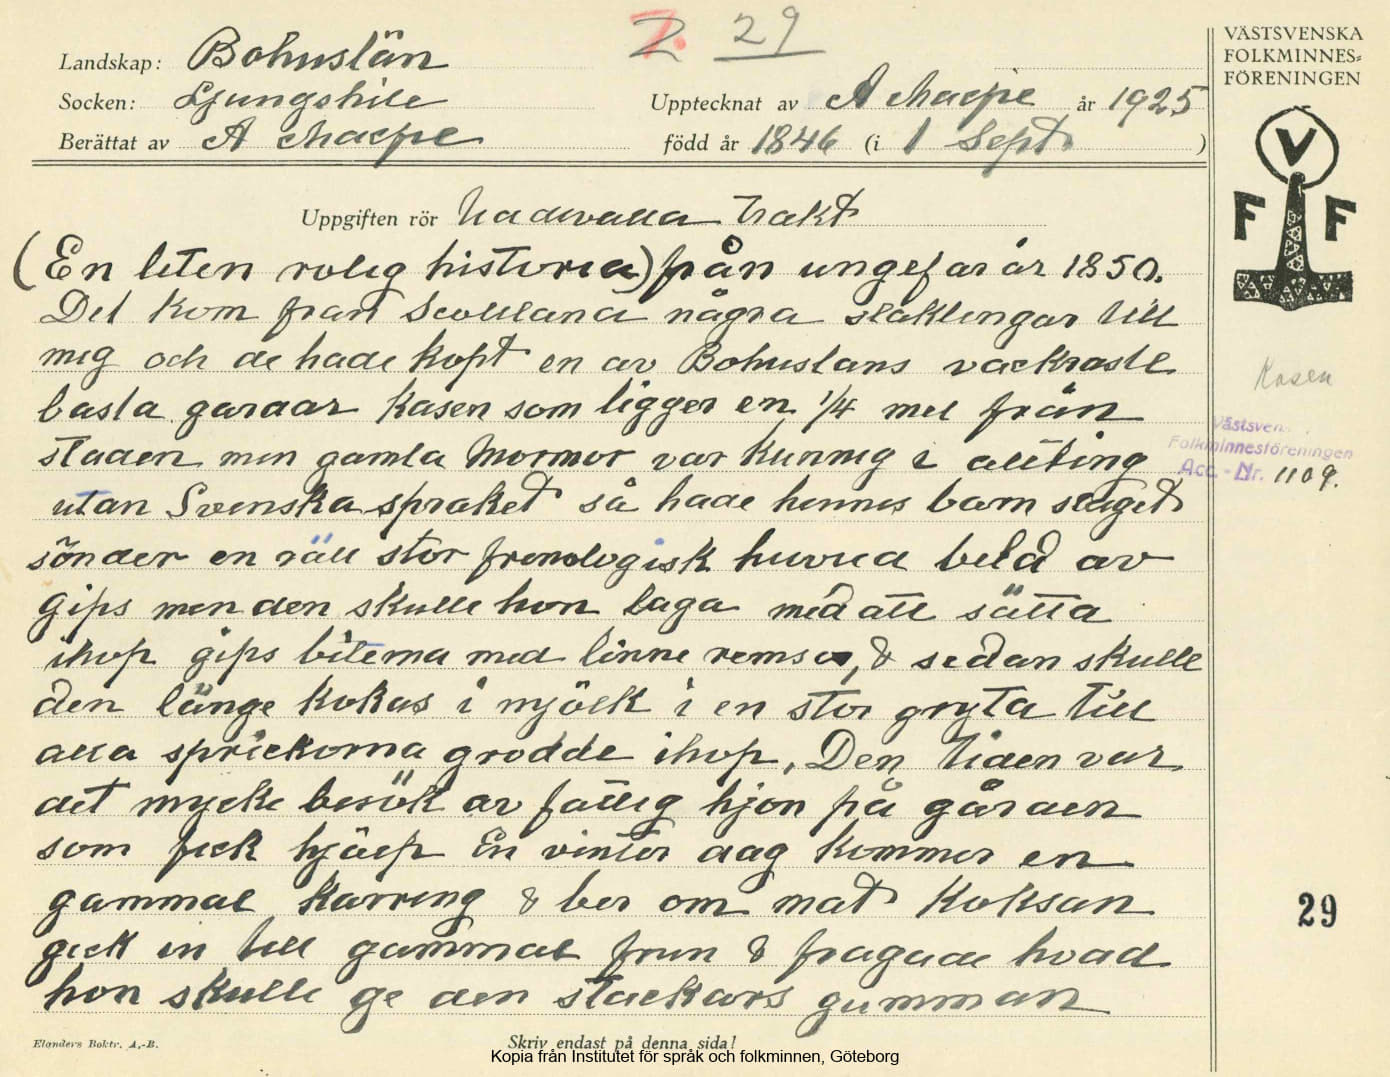 7. 2 29
Landskap: Bohuslän
Socken: Ljungskile
Upptecknat av A Macfie år 1925
Berättat av A Macfie
född år 1846 (i 1 Sept. )
VÄSTSVENSKA
FOLKMINNES-
FÖRENINGEN
V
F F
Uppgiften rör Uddevalla Trakt
(En liten rolig historia) från ungefär år 1850.
Det kom från Scottland några släktingar till
mig och de hade köpt en av Bohusläns vackraste
basta gårdar Kasen som ligger en 1/4 mil från
staden min gamla Mormor var kunnig i allting
utan Svenska språket så hade hennes barn slaget
sönder en rätt stor frenologisk huvud bild av
gips men den skulle hon laga med att sätta
ihop gips bitarna med linne remsor, & sedan skulle
den länge kokas i mjölk i en stor gryta till
alla sprickorna grodde ihop. Den tiden var
det mycke besök av fattig hjon på gården
som fick hjälp En vinter dag kommer en
gammal karring & ber om mat Koksan
gick in till gammal frun & fragade hvad
hon skulle ge den stackars gumman
Kasen
Västsven
Folkminnesföreningen
Acc.-Nr. 1109.
29
Elanders Boktr. A.-B.
Skriv endast på denna sida!
Kopia från Institutet för språk och folkminnen, Göteborg